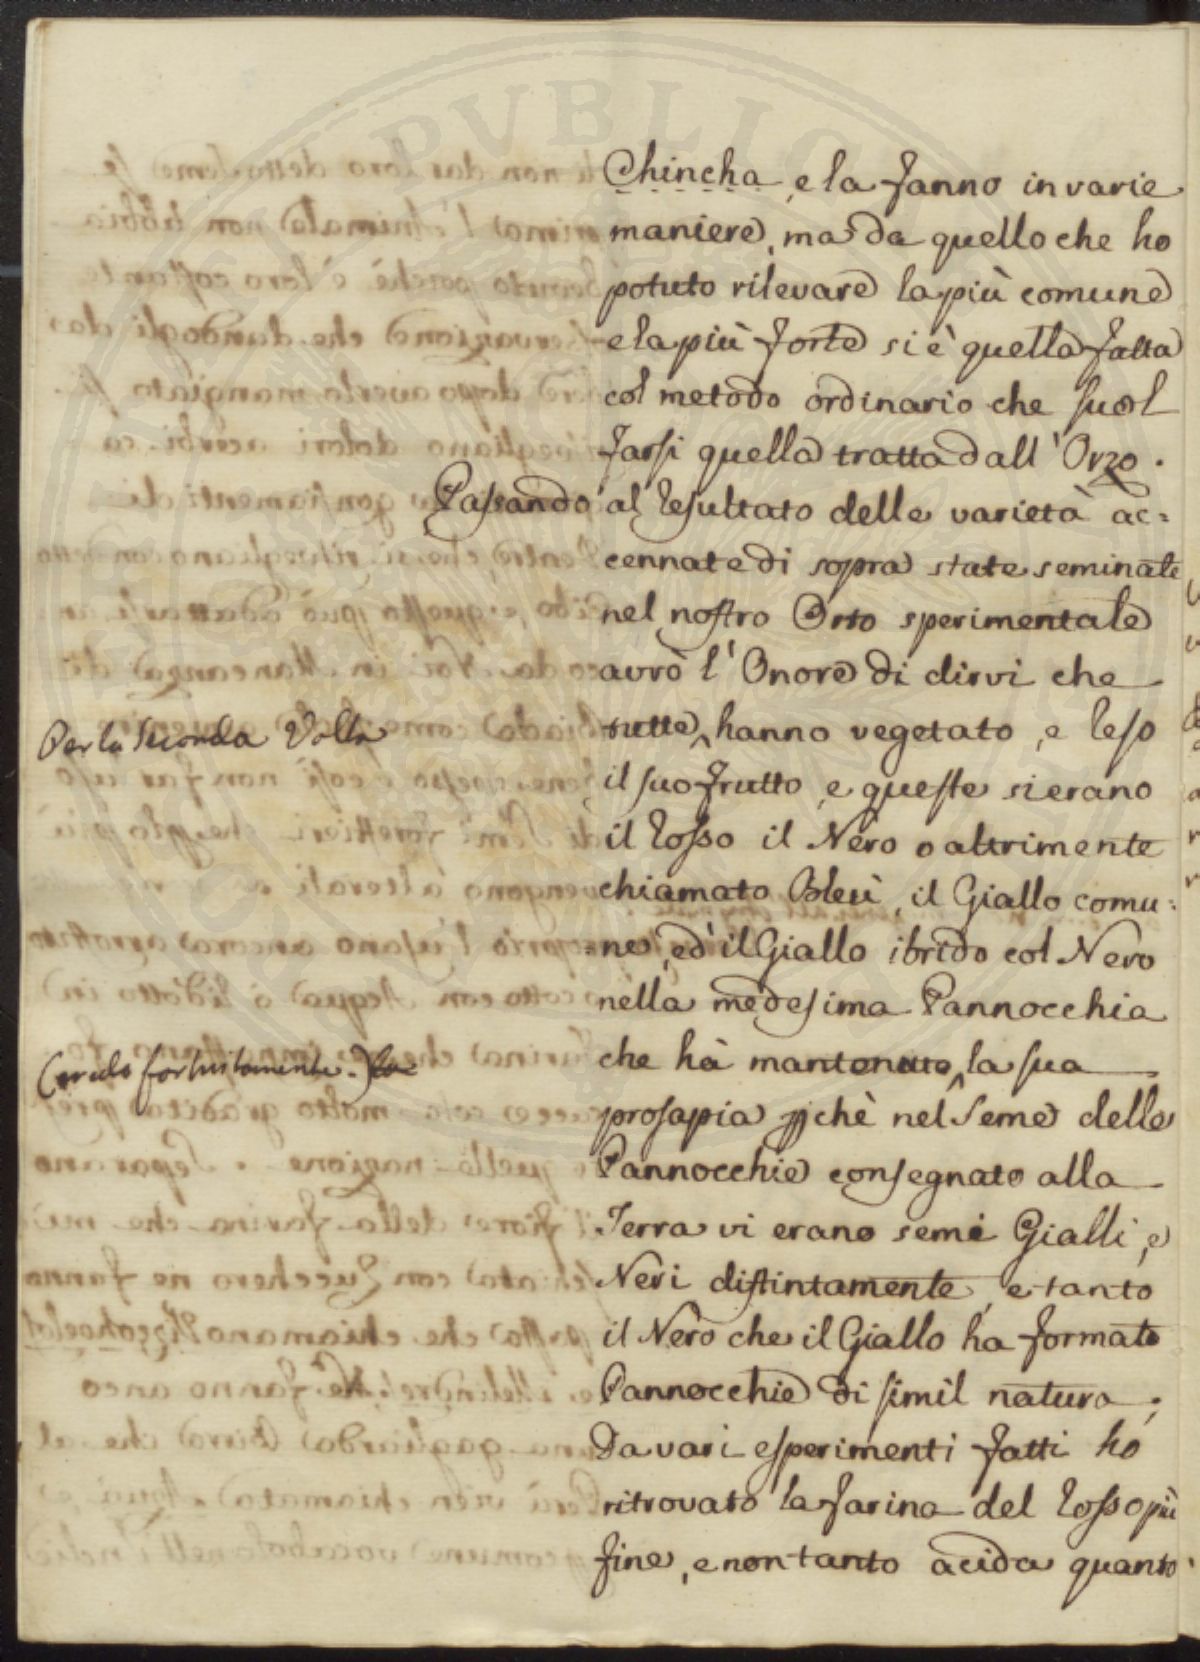 Chincha, e la fanno in varie
maniere, ma da quello che ho
potuto rilevare la più comune
e la più forte si è quella fatta
col metodo ordinario che suol
farsi quella tratta dall'Orzo.
Passando al resultato delle varietà ac=
cennate di sopra state seminate
nel nostro Orto sperimentale
avrò l'Onore di dirvi che
Per la Seconda Volta
tutte hanno vegetato, e reso
il suo frutto, e queste si erano
il rosso il Nero o altrimente
chiamato Bleù, il Giallo comu=
ne, ed il Giallo ibrido col Nero
nella medesima Pannocchia
che hà mantenuto la sua
(credo fortuitamente.) la
prosapia pchè nel Seme delle
Pannocchie consegnato alla
Terra vi erano semi Gialli, e
Neri distintamente, e tanto
il Nero che il Giallo ha formato
Pannocchie di simil natura.
Da vari esperimenti fatti ho
ritrovato la farina del rosso più
fine, e non tanto acida quanto